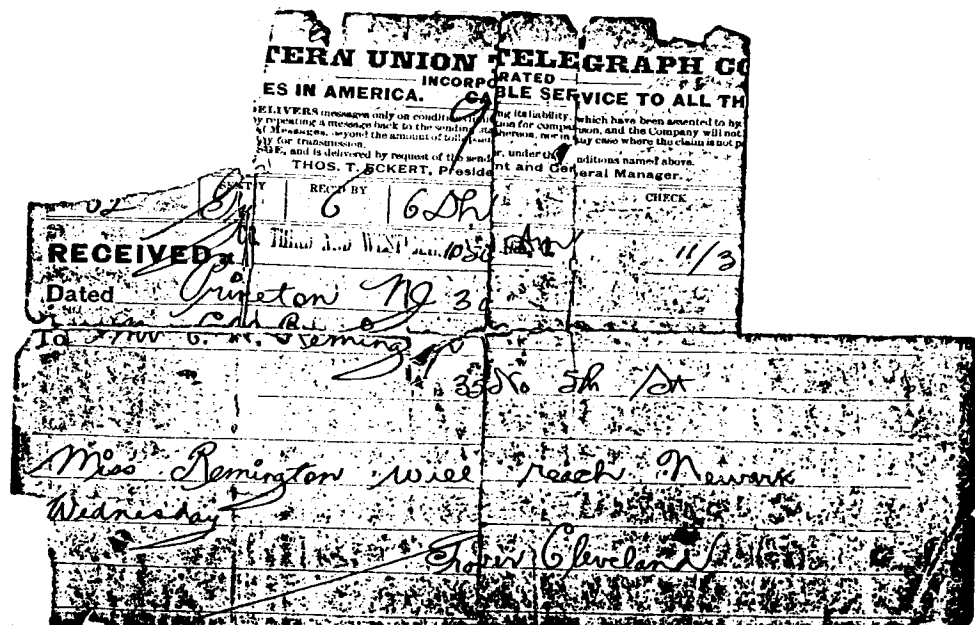 TERN UNION TELEGRAPH CO
INCORPORATED
ES IN AMERICA. CABLE SERVICE TO ALL TH
DELIVERS messages only on conditi ng its liability, which have been assented to by
y repeating a message back to the sending sta ion for comparison, and the Company will not
of Messages, beyond the amount of tolls thereon, nor in any case where the claim is not p
ly for transmission.
GE, and is delivered by request of the sender, under the conditions named above.
THOS. T. ECKERT, President and General Manager.
SENT BY REC'D BY CHECK
6 6 Dh
RECEIVED at THIRD AND WEST 11/3
Dated Prineton NJ 30
To Mr C. H. Remington
35 No 5th St
Miss Remington will reach Newark
Wednesday
Grover Cleveland